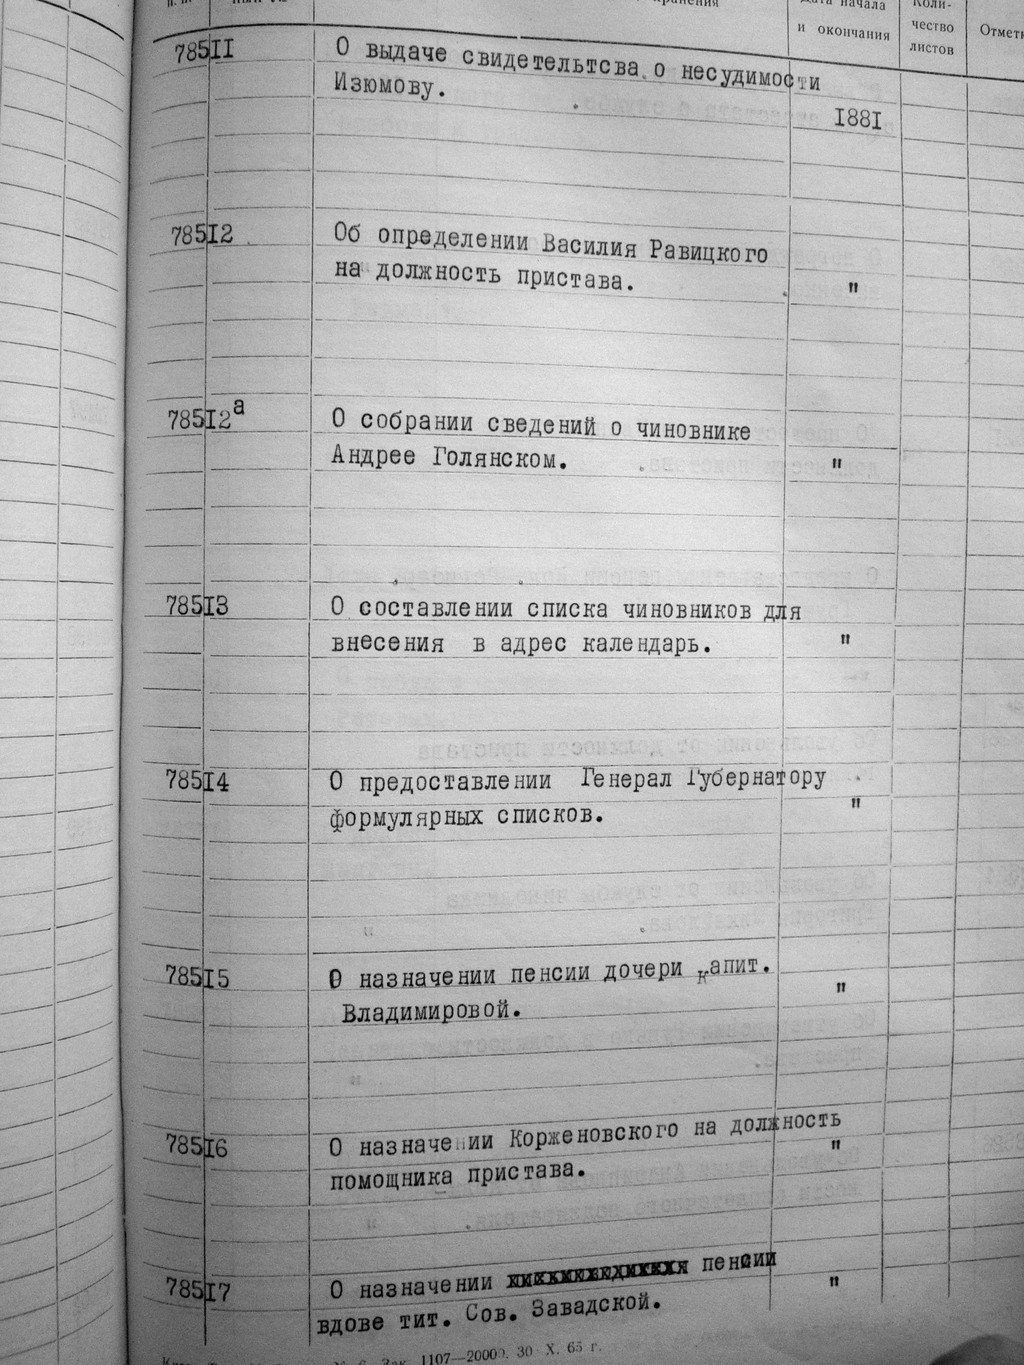 Дата начала
и окончания
Коли-
чество
листов
785II О выдаче свидетельтсва о несудимости
Изюмову.
I88I
785I2 Об определении Василия Равицкого
на должность пристава. "
785I2а О собрании сведений о чиновнике
Андрее Голянском. "
785I3 О составлении списка чиновников для
внесения в адрес календарь. "
785I4 О предоставлении Генерал Губернатору
формулярных списков. "
785I5 О назначении пенсии дочери капит.
Владимировой. "
785I6 О назначении Корженовского на должность
помощника пристава. "
785I7 О назначении пенсии
вдове тит. Сов. Завадской. "
Зак. 1107—20000. 30 X. 65 г.